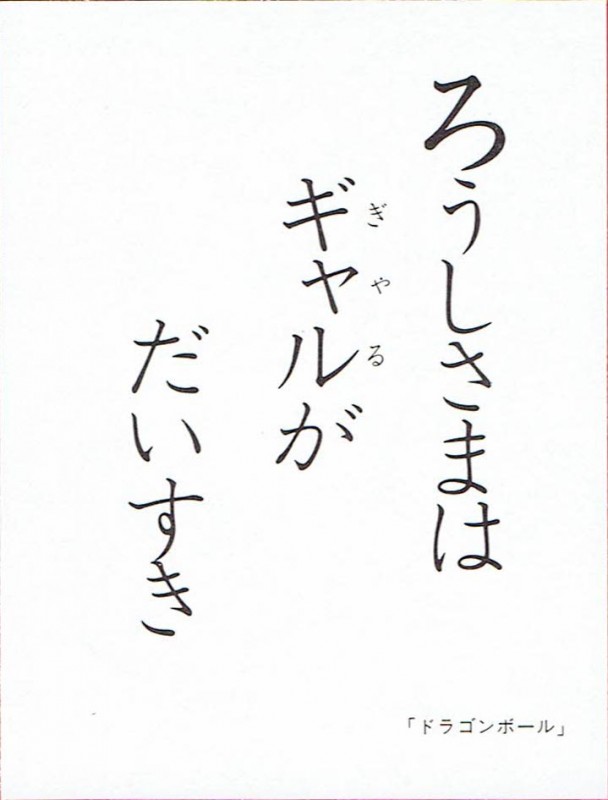 ろうしさまは
ギャルが
ぎやる
だいすき
「ドラゴンボール」